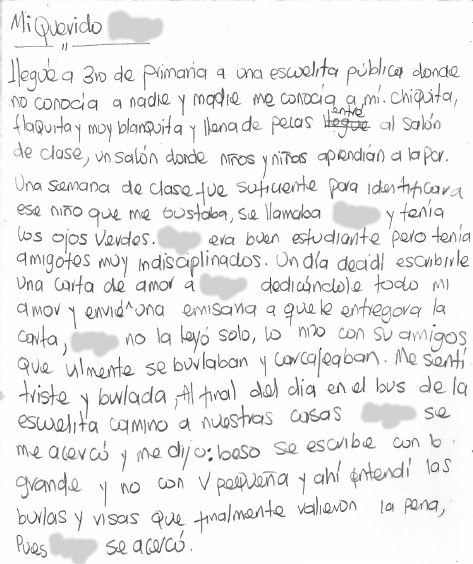 Mi Querido
"
llegué a 3ro de primaria a una escuelita pública donde
no conocía a nadie y nadie me conocía a mí. chiquita,
flaquita y muy blanquita y llena de pecas llegue entre al salón
de clase, un salón donde niños y niñas aprendían a la par.
Una semana de clase fue suficiente para identificar a
ese niño que me gustaba, se llamaba y tenía
los ojos verdes. era buen estudiante pero tenía
amigotes muy indisciplinados. Un día decidí escribirle
una carta de amor a dedicándole todo mi
amor y envié una emisaria a que le entregara la
carta, no la leyó solo, lo hizo con su amigos
que vilmente se burlaban y carcajeaban. Me sentí
triste y burlada, Al final del día en el bus de la
escuelita camino a nuestras casas se
me acercó y me dijo: beso se escribe con b
grande y no con v pequeña y ahí entendí las
burlas y risas que finalmente valieron la pena,
Pues se acercó.